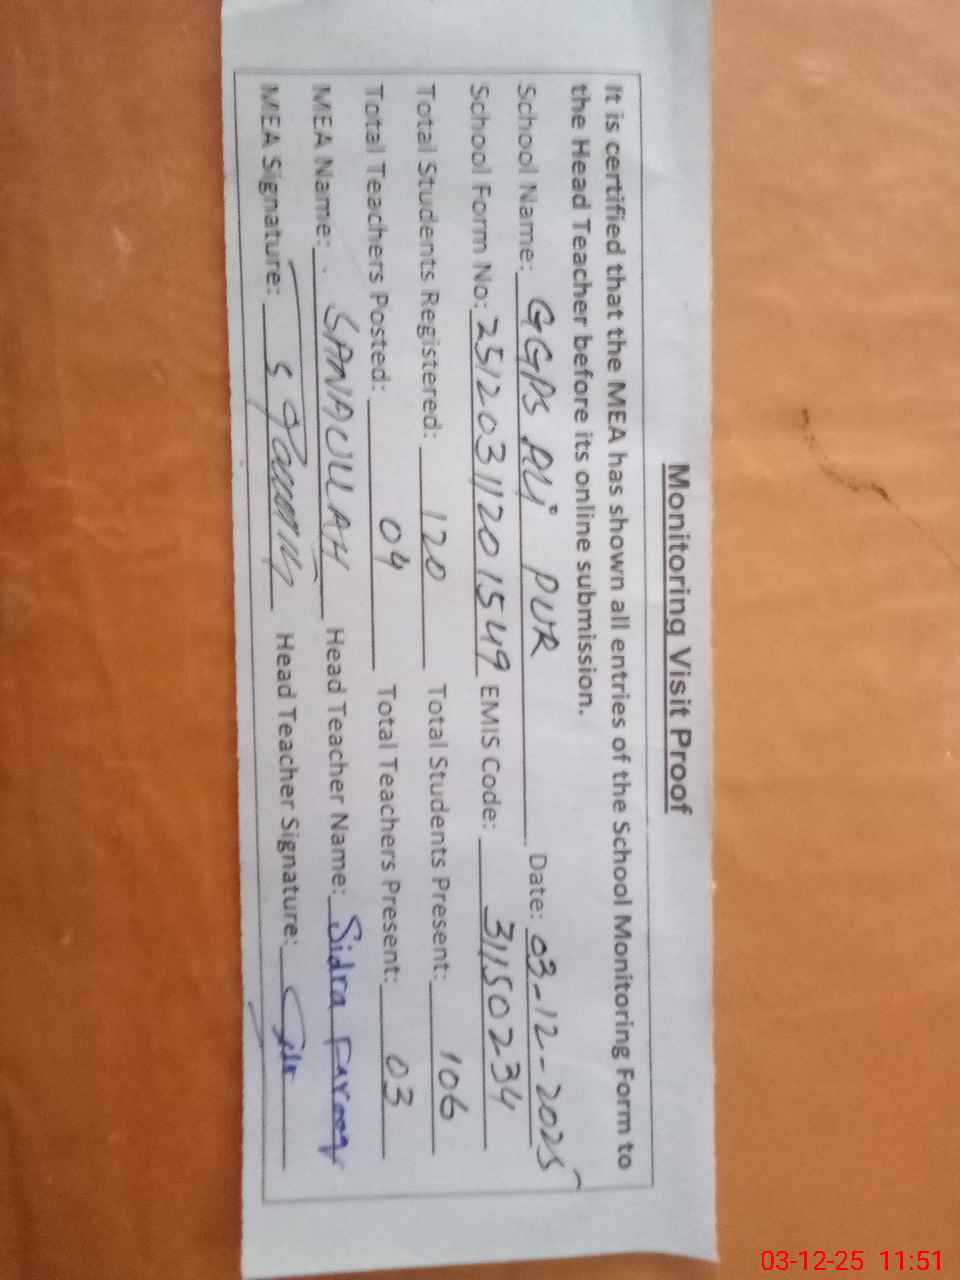 Monitoring Visit Proof
It is certified that the MEA has shown all entries of the School Monitoring Form to
the Head Teacher before its online submission.
School Name: GGPS ALi PUR Date: 03-12-2025
School Form No: 25120311201549 EMIS Code: 31150234
Total Students Registered: 120 Total Students Present: 106
Total Teachers Posted: 04 Total Teachers Present: 03
MEA Name: SANAULLAH Head Teacher Name: Sidra Farooq
MEA Signature: Head Teacher Signature:
03-12-25 11:51